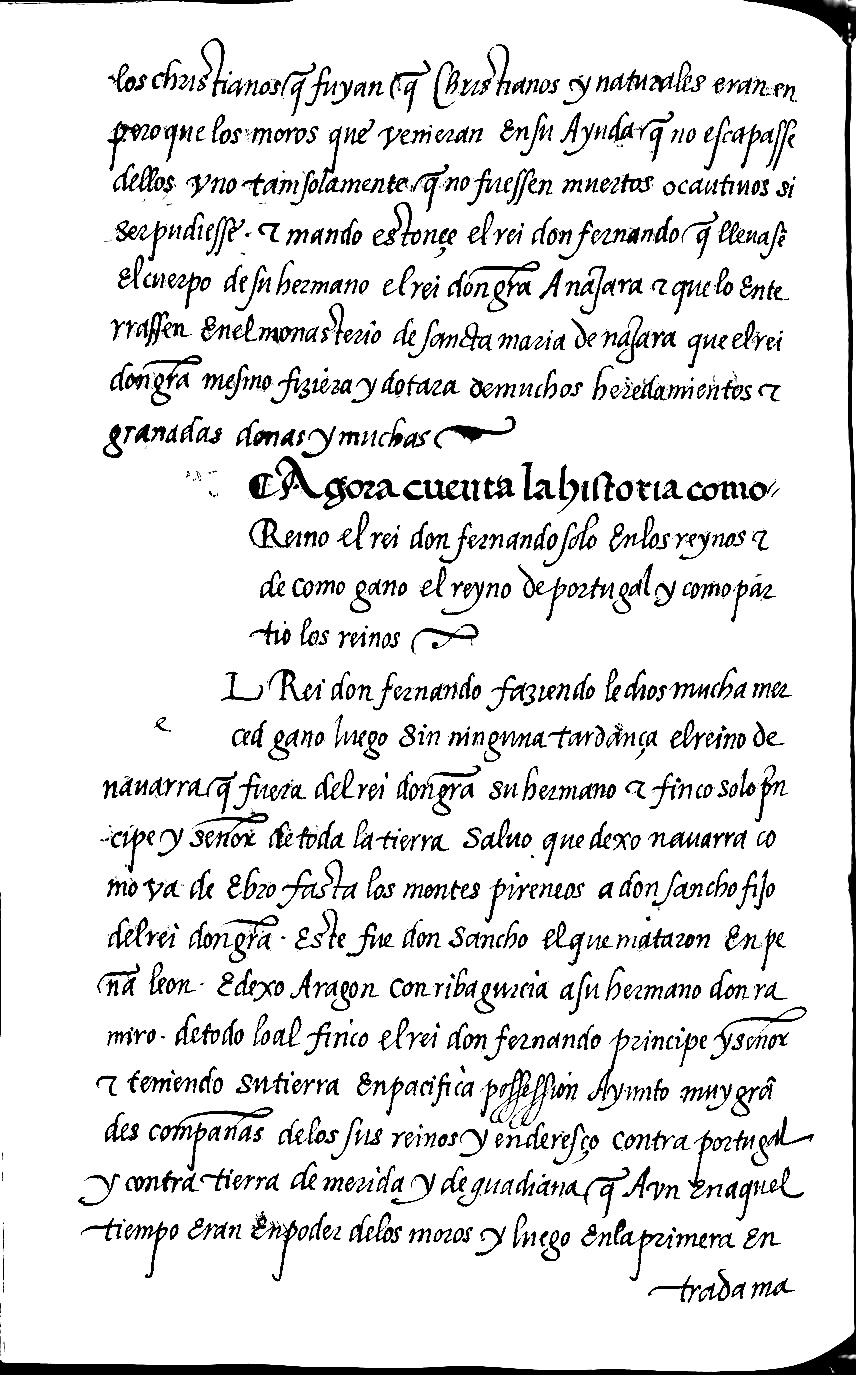 los christianos q̃ fuyan q̃ Christianos y naturales eran en
pero que los moros que venieran En su Ayuda q̃ no escapasse
dellos vno tan solamente q̃ no fuessen muertos o cautiuos si
Ser pudiesse · ⁊ mando estonçe el rei don fernando q̃ lleuasẽ
El cuerpo de su hermano el rei don gr̃a A najara ⁊ que lo Ente
rrassen En el monasterio de sancta maria de najara que el rei
don gr̃a mesmo fiziera y dotara de muchos heredamientos ⁊
granadas donas y muchas
¶ Agora cuenta la historia como
Reino el rei don fernando solo En los reynos ⁊
de como gano el reyno de portugal y como par
tio los reinos
e L Rei don fernando faziendo le dios mucha mer
ced gano luego Sin ninguna tardança el reino de
nauarra q̃ fuera del rei don gr̃a su hermano ⁊ finco solo pñ
cipe y señor de toda la tierra Saluo que dexo nauarra co
mo va de Ebro fasta los montes pireneos a don sancho fijo
del rei don gr̃a · Este fue don Sancho el que mataron En pe
ña leon · E dexo Aragon con ribagurcia a su hermano don ra
miro · de todo lo al finco el rei don fernando principe y señor
⁊ teniendo su tierra En pacifica possession Ayunto muy grã
des compañas de los sus reinos y endereço contra portugal
y contra tierra de merida y de guadiana q̃ Avn En aquel
tiempo Eran En poder de los moros y luego En la primera En
trada ma